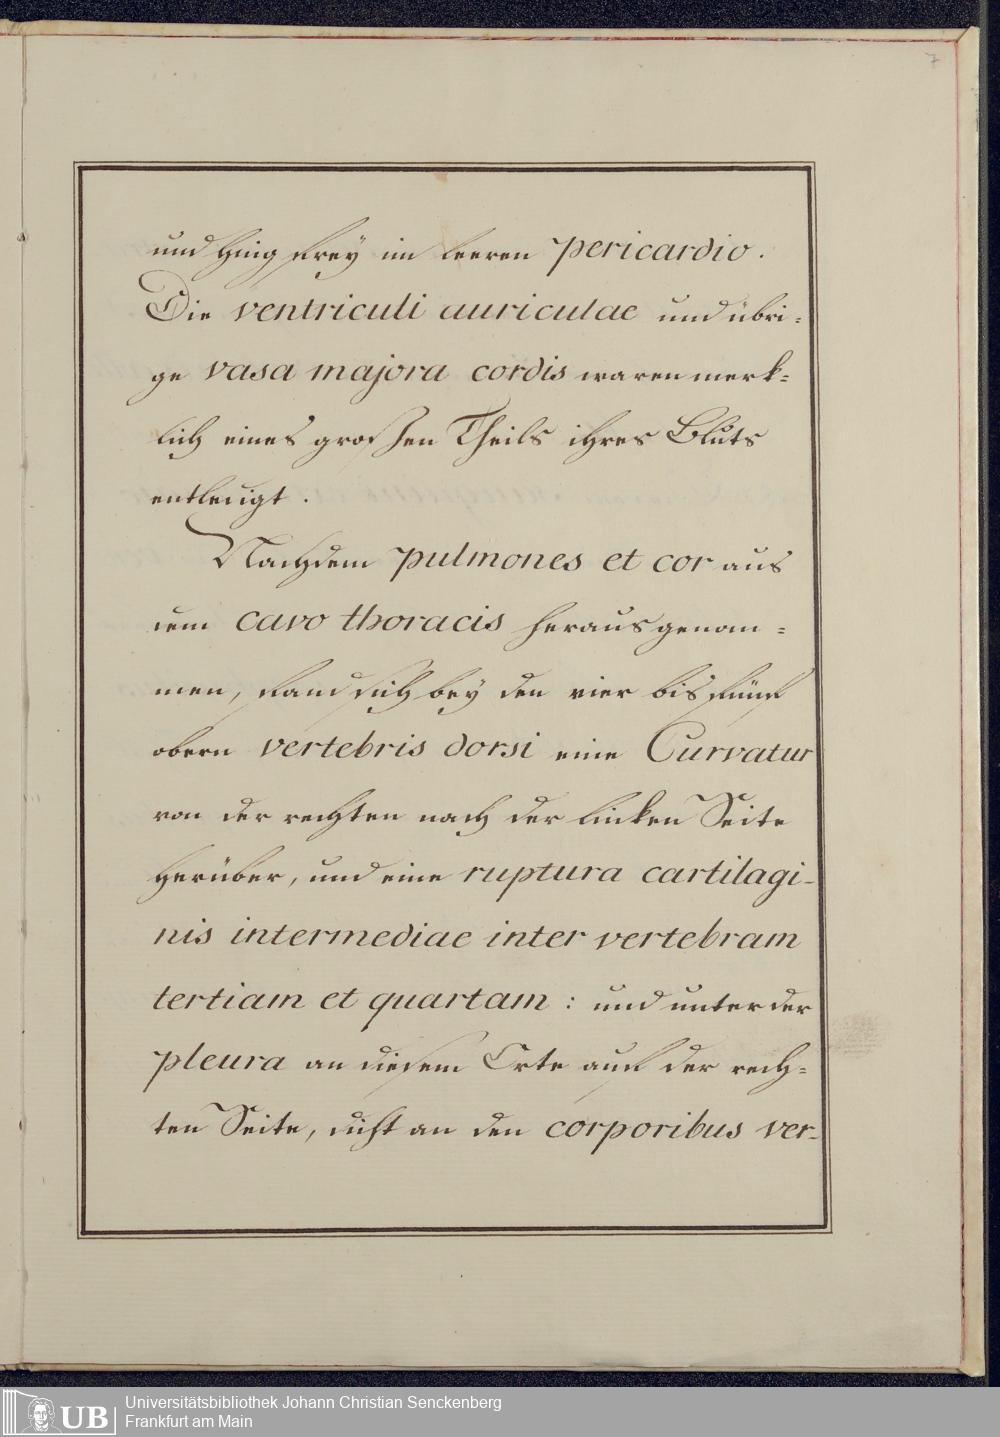 7
und hing frey im leeren pericardio.
Die ventriculi auriculae und übri=
ge vasa majora cordis waren merk=
lich eines großen Theils ihres Bluts
entleert.
Nachdem pulmones et cor aus
dem cavo thoracis herausgenom=
men, fand sich bey den vier bis fünf
obern vertebris dorsi eine Curvatur
von der rechten nach der linken Seite
herüber, und eine ruptura cartilagi-
nis intermediae inter vertebram
tertiam et quartam: und unter der
pleura an diesem Orte auf der rech=
ten Seite, dicht an den corporibus ver-
UB
Universitätsbibliothek Johann Christian Senckenberg
Frankfurt am Main